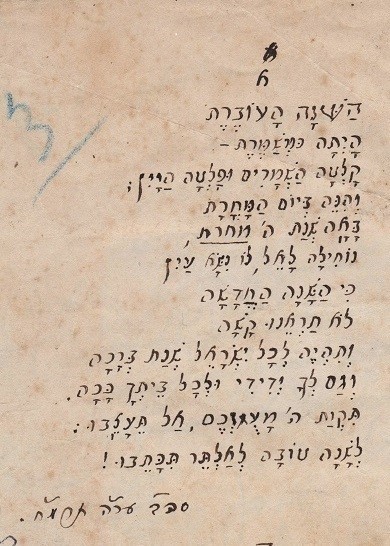 א
הַשָּׁנָה הָעוֹבֶרֶת
הָיְתָה כִּמְשַׁמֶּרֶת –
קָלְטָה הַשְּׁמָרִים וּפָלְטָה הַיַּיִן;
וְהִנֵּה בְּיוֹם הַמָּחֳרָת
בָּאָה שְׁנַת ה' מחרת,
נוֹחִילָה לָאֵל, לוֹ נִשָּׂא עַיִן
כִּי הַשָּׁנָה הַחֲדָשָׁה
לֹא תַרְאֵנוּ קָשָׁה
וּתְהִיֶה לְכָל יִשְׂרָאֵל שְׁנַת בְּרָכָה
וְגַם לְךָ יְדִידִי וּלְכָל בֵּיתְךָ כָּכָה.
תִּקְוַת ה' מָעֻזְּכֶם, אַל תֵּעָצֵבוּ:
לְשָׁנָה טוֹבָה לְאַלְתַּר תִּכָּתֵבוּ!
ער"ה תרמ"ח.